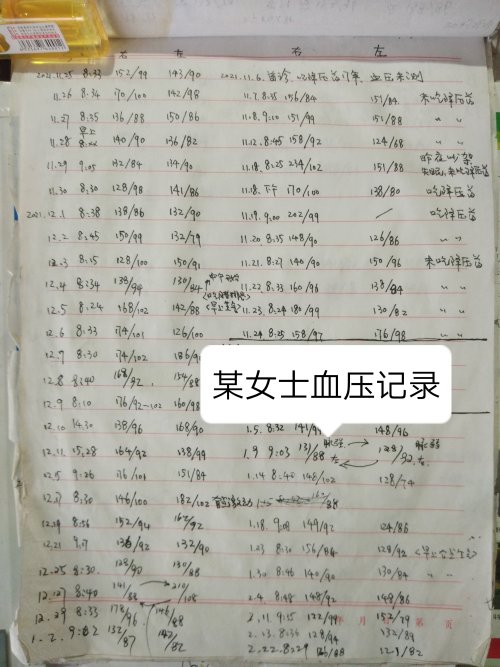 右 左
2021.11.25 8:33 152/99 143/90
11.26 8:34 170/100 142/98
11.27 8:35 136/88 150/86
早上
11.28 140/90 136/82
11.29 9:05 132/84 134/90
11.30 8:30 128/98 141/86
2021.12.1 8:38 138/86 132/90
12.2 8:45 150/99 132/79
12.3 8:15 128/100 150/91
12.4 8:34 138/94 130/84
12.5 8:24 168/102 142/88
12.6 8:33 174/101 126/100
12.7 8:30 174/102
12.8 8:40 168/92 154/88
12.9 8:10 176/92-102 160/98
12.10 14:30 138/96 168/90
12.11 15:28 164/92 138/99
12.15 9:26 176/101 151/84
12.17 8:30 146/100 182/102
12.19 8:56 152/94 162/92
12.21 136/92 132/90
12.25 8:30 128/90 130/88
12.27 8:40 141/88 210/108
12.29 8:33 178/96 146/88
1.2. 9:02 132/87 142/82
右 左
2021.11.6 血压未测
11.7 8:15 156/84 151/84 未吃降压药
11.8 9:10 151/99 151/88 〃 〃
11.12 8:45 158/92 124/68 〃 〃
11.18 8:25 234/102 151/88 昨夜吵架
11.18 下午 170/100 138/80 吃降压药
11.19 9:00 202/99 / 吃降压药
11.20 8:35 148/90 126/86 〃 〃
11.21 8:27 140/90 150/96 未吃降压药
11.22 8:33 160/96 138/84 〃 〃
11.23 8:24 180/99 130/82 〃 〃
11.24 8:25 158/97 176/98 〃 〃
某女士血压记录
1.5. 8:32 148/96
1.9 9:03 131/88 128/92
右 左
1.14 8:40 148/102 128/74
162/88
1.18. 9:08 149/92 124/86
8:30 156/84 128/92
1.30 8:46 140/90 130/84 〃 〃
2.4 8:48 148/92 148/86
2.11 9:15 122/99 152/79
年 月 日 第 页
2.13 8:36 128/94 132/89
2.22 8:29